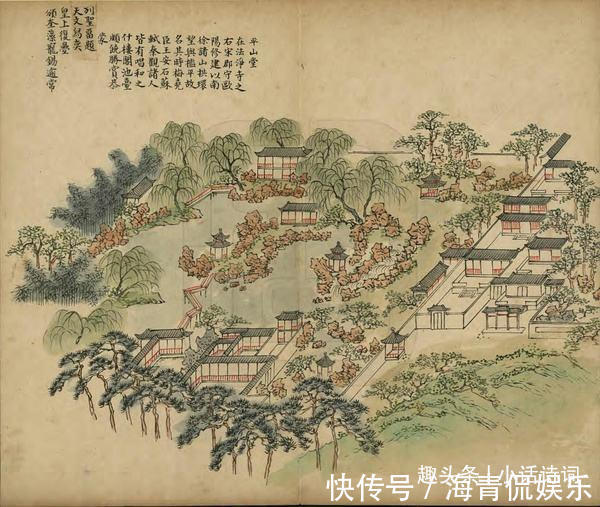 平山堂
在法淨寺之
右宋郡守歐
陽修建以南
徐諸山拱環
望與檻平故
名其時梅堯
臣王安石蘇
軾秦觀諸人
皆有唱和之
什樓閣池臺
頗饒勝賞恭
蒙
列聖畱題
天文炳奐
皇上復疊
頒奎藻寵錫逾常
趣头条 | 小话诗词
快传号 / 海青侃娱乐